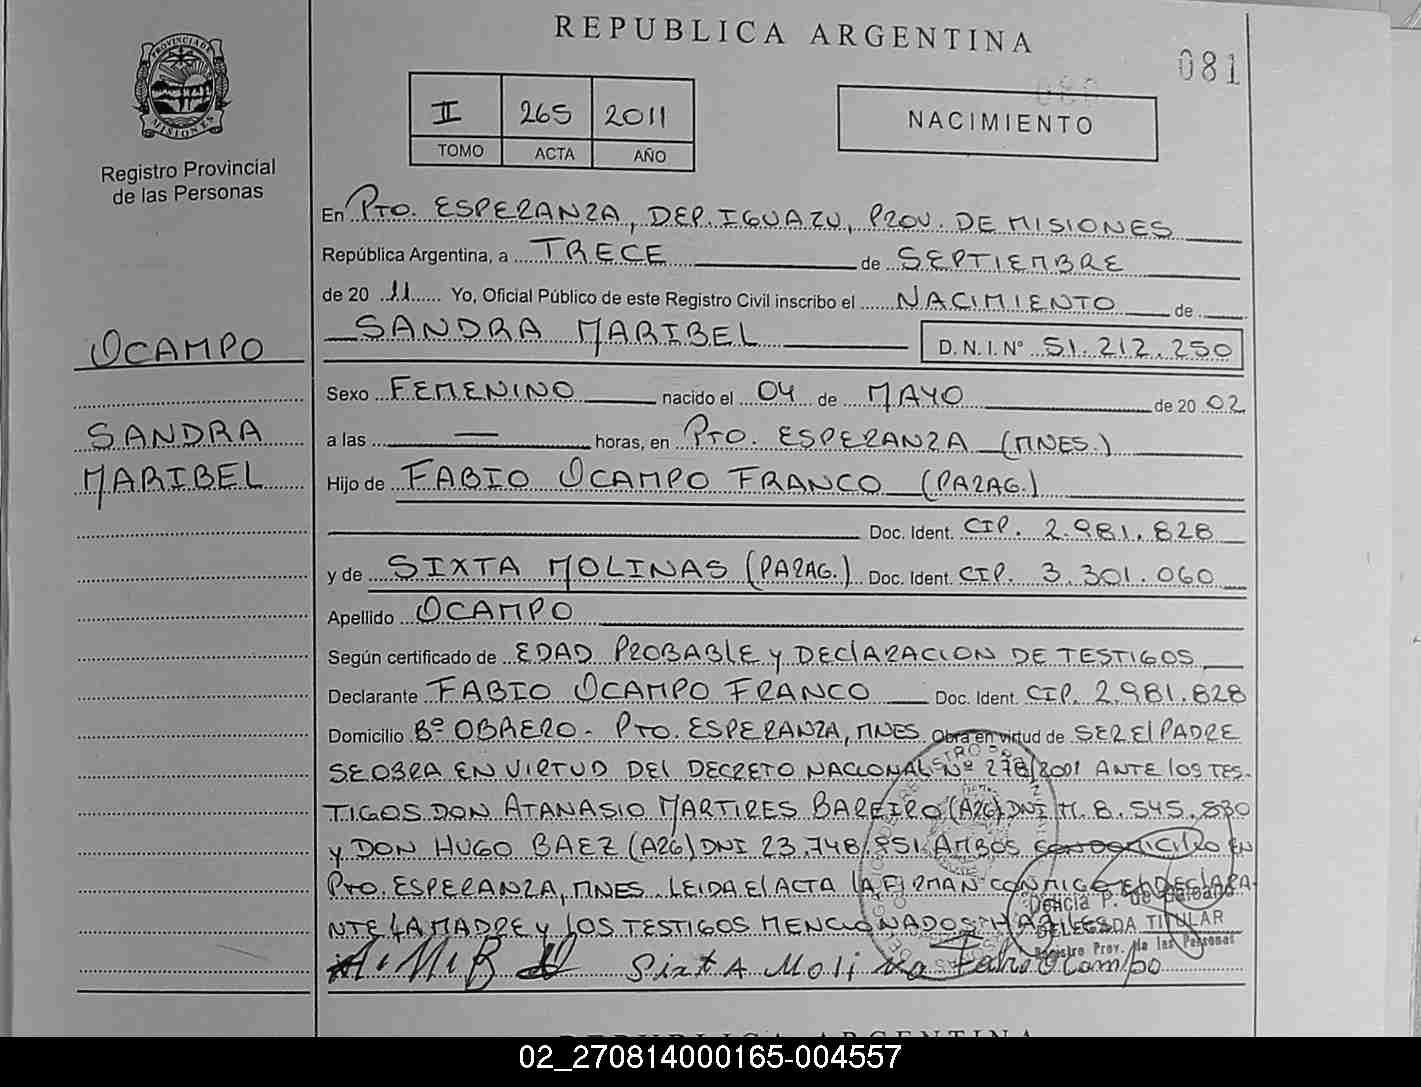 REPUBLICA ARGENTINA
081
PROVINCIA DE
MISIONES
Registro Provincial
de las Personas
II 265 2011
TOMO ACTA AÑO
NACIMIENTO
En PTO. ESPERANZA, DEP. IGUAZU, PROV. DE MISIONES
República Argentina, a TRECE de SEPTIEMBRE
de 20 11 Yo, Oficial Público de este Registro Civil inscribo el NACIMIENTO de
SANDRA MARIBEL D.N.I. Nº 51.212.250
OCAMPO
SANDRA
MARIBEL
Sexo FEMENINO nacido el 04 de MAYO de 20 02
a las — horas, en PTO. ESPERANZA (MNES.)
Hijo de FABIO OCAMPO FRANCO (PARAG.)
Doc. Ident. CIP. 2.981.828
y de SIXTA MOLINAS (PARAG.) Doc. Ident. CIP. 3.301.060
Apellido OCAMPO
Según certificado de EDAD PROBABLE y DECLARACION DE TESTIGOS
Declarante FABIO OCAMPO FRANCO Doc. Ident. CIP. 2.981.828
Domicilio Bº OBRERO - PTO. ESPERANZA, MNES Obra en virtud de SER El PADRE
SE OBRA EN VIRTUD DEl DECRETO NACIONAL Nº 278/2001 ANTE lOS TES-
TIGOS DON ATANASIO MARTIRES BAREIRO (ARG) DNI M. 8.545.830
y DON HUGO BAEZ (ARG) DNI 23.748.951. AMBOS CON DOMICILIO EN
PTO. ESPERANZA, MNES. LEIDA El ACTA lA FIRMAN CONMIGO El DEClARA-
NTE LA MADRE y LOS TESTIGOS MENCIONADOS HABILES
Delicia P. de
DELEGADA TITULAR
Registro Prov. de las Personas
A. M. B Sixta Molina Fabio Ocampo
REPUBLICA ARGENTINA
02_270814000165-004557